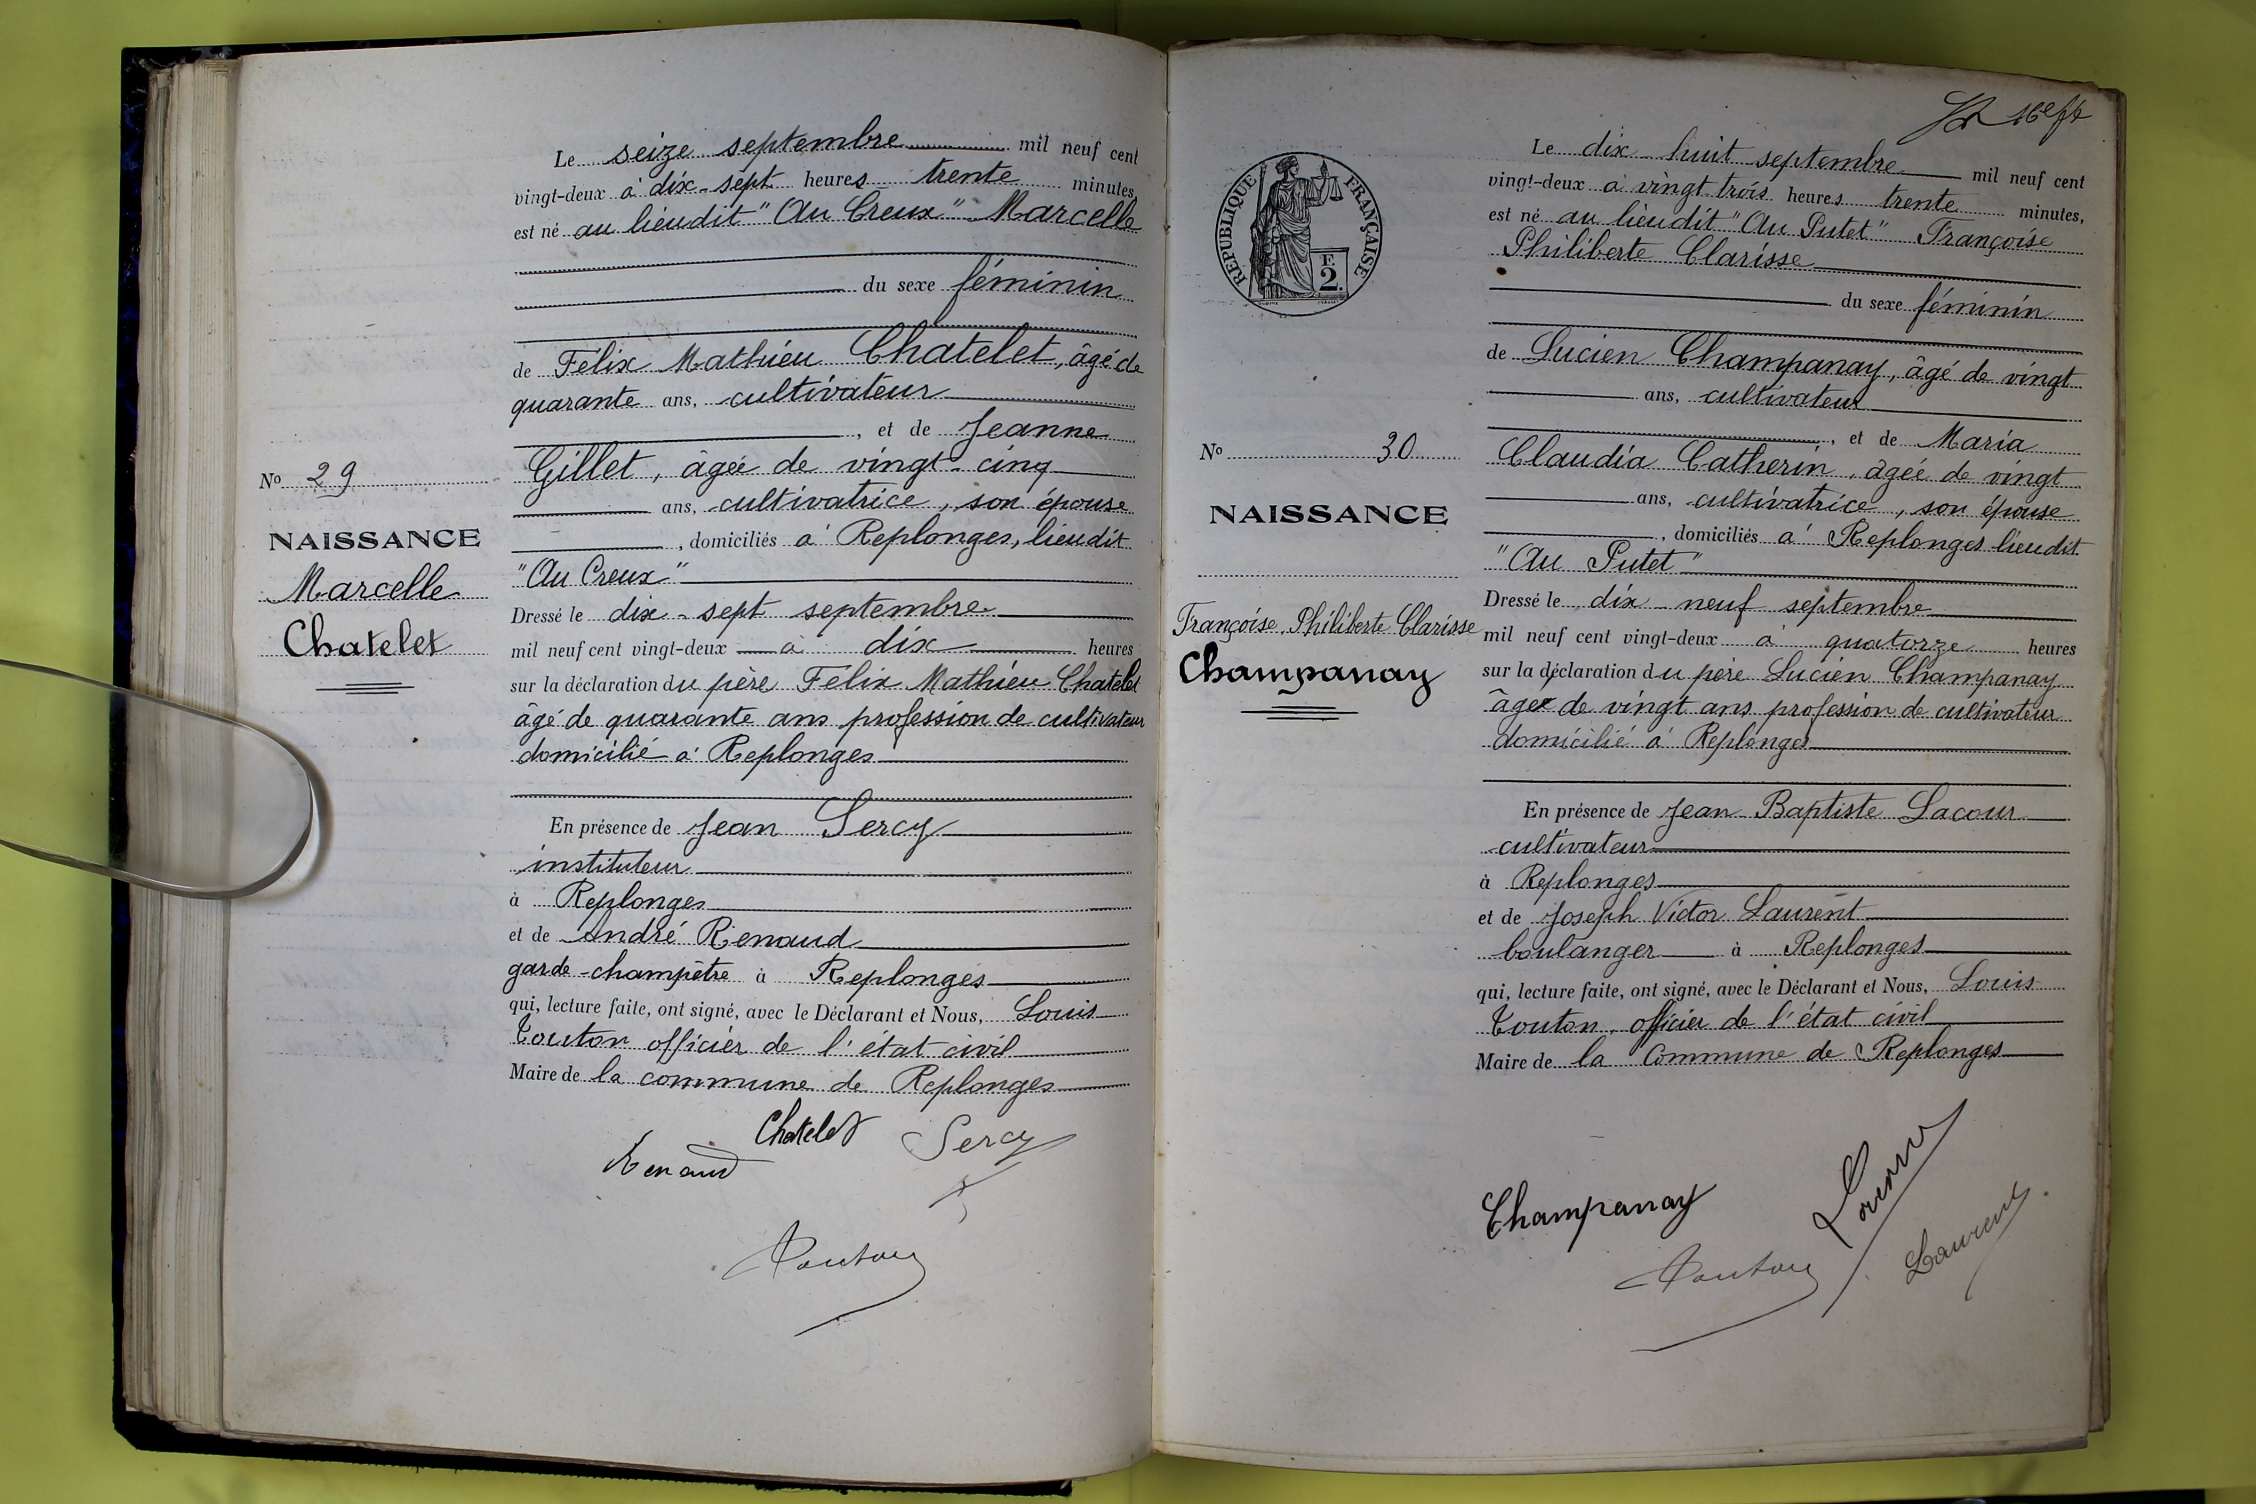 Le seize septembre mil neuf cent
vingt-deux à dix-sept heures trente minutes,
est né au lieudit "Au Creux" Marcelle
du sexe féminin
de Félix Mathieu Chatelet, âgé de
quarante ans, cultivateur
, et de Jeanne
Gillet, âgée de vingt-cinq
ans, cultivatrice, son épouse
, domiciliés à Replonges, lieudit
"Au Creux"
Dressé le dix-sept septembre
mil neuf cent vingt-deux à dix heures
sur la déclaration du père Félix Mathieu Chatelet
âgé de quarante ans profession de cultivateur
domicilié à Replonges
En présence de Jean Sercy
instituteur
à Replonges
et de André Renaud
garde-champêtre à Replonges
qui, lecture faite, ont signé, avec le Déclarant et Nous, Louis
Touton officier de l'état civil
Maire de la commune de Replonges
No 29
NAISSANCE
Marcelle
Chatelet
Chatelet Sercy
Renaud
Touton
RÉPUBLIQUE FRANÇAISE
F.
2.
No 30
NAISSANCE
Françoise Philiberte Clarisse
Champanay
Le dix huit septembre mil neuf cent
vingt-deux à vingt trois heures trente minutes,
est né au lieudit "Au Putet" Françoise
Philiberte Clarisse
du sexe féminin
de Lucien Champanay, âgé de vingt
ans, cultivateur
, et de Maria
Claudia Catherin, âgée de vingt
ans, cultivatrice, son épouse
, domiciliés à Replonges lieudit
"Au Putet"
Dressé le dix neuf septembre
mil neuf cent vingt-deux à quatorze heures
sur la déclaration du père Lucien Champanay
âgé de vingt ans profession de cultivateur
domicilié à Replonges
En présence de Jean Baptiste Lacour
cultivateur
à Replonges
et de Joseph Victor Laurent
boulanger à Replonges
qui, lecture faite, ont signé, avec le Déclarant et Nous, Louis
Touton, officier de l'état civil
Maire de la Commune de Replonges
Champanay Lacour
Touton Laurent